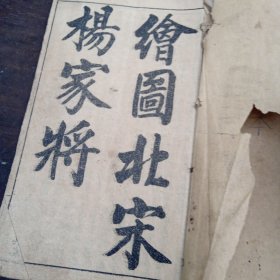 繪圖北宋
楊家將